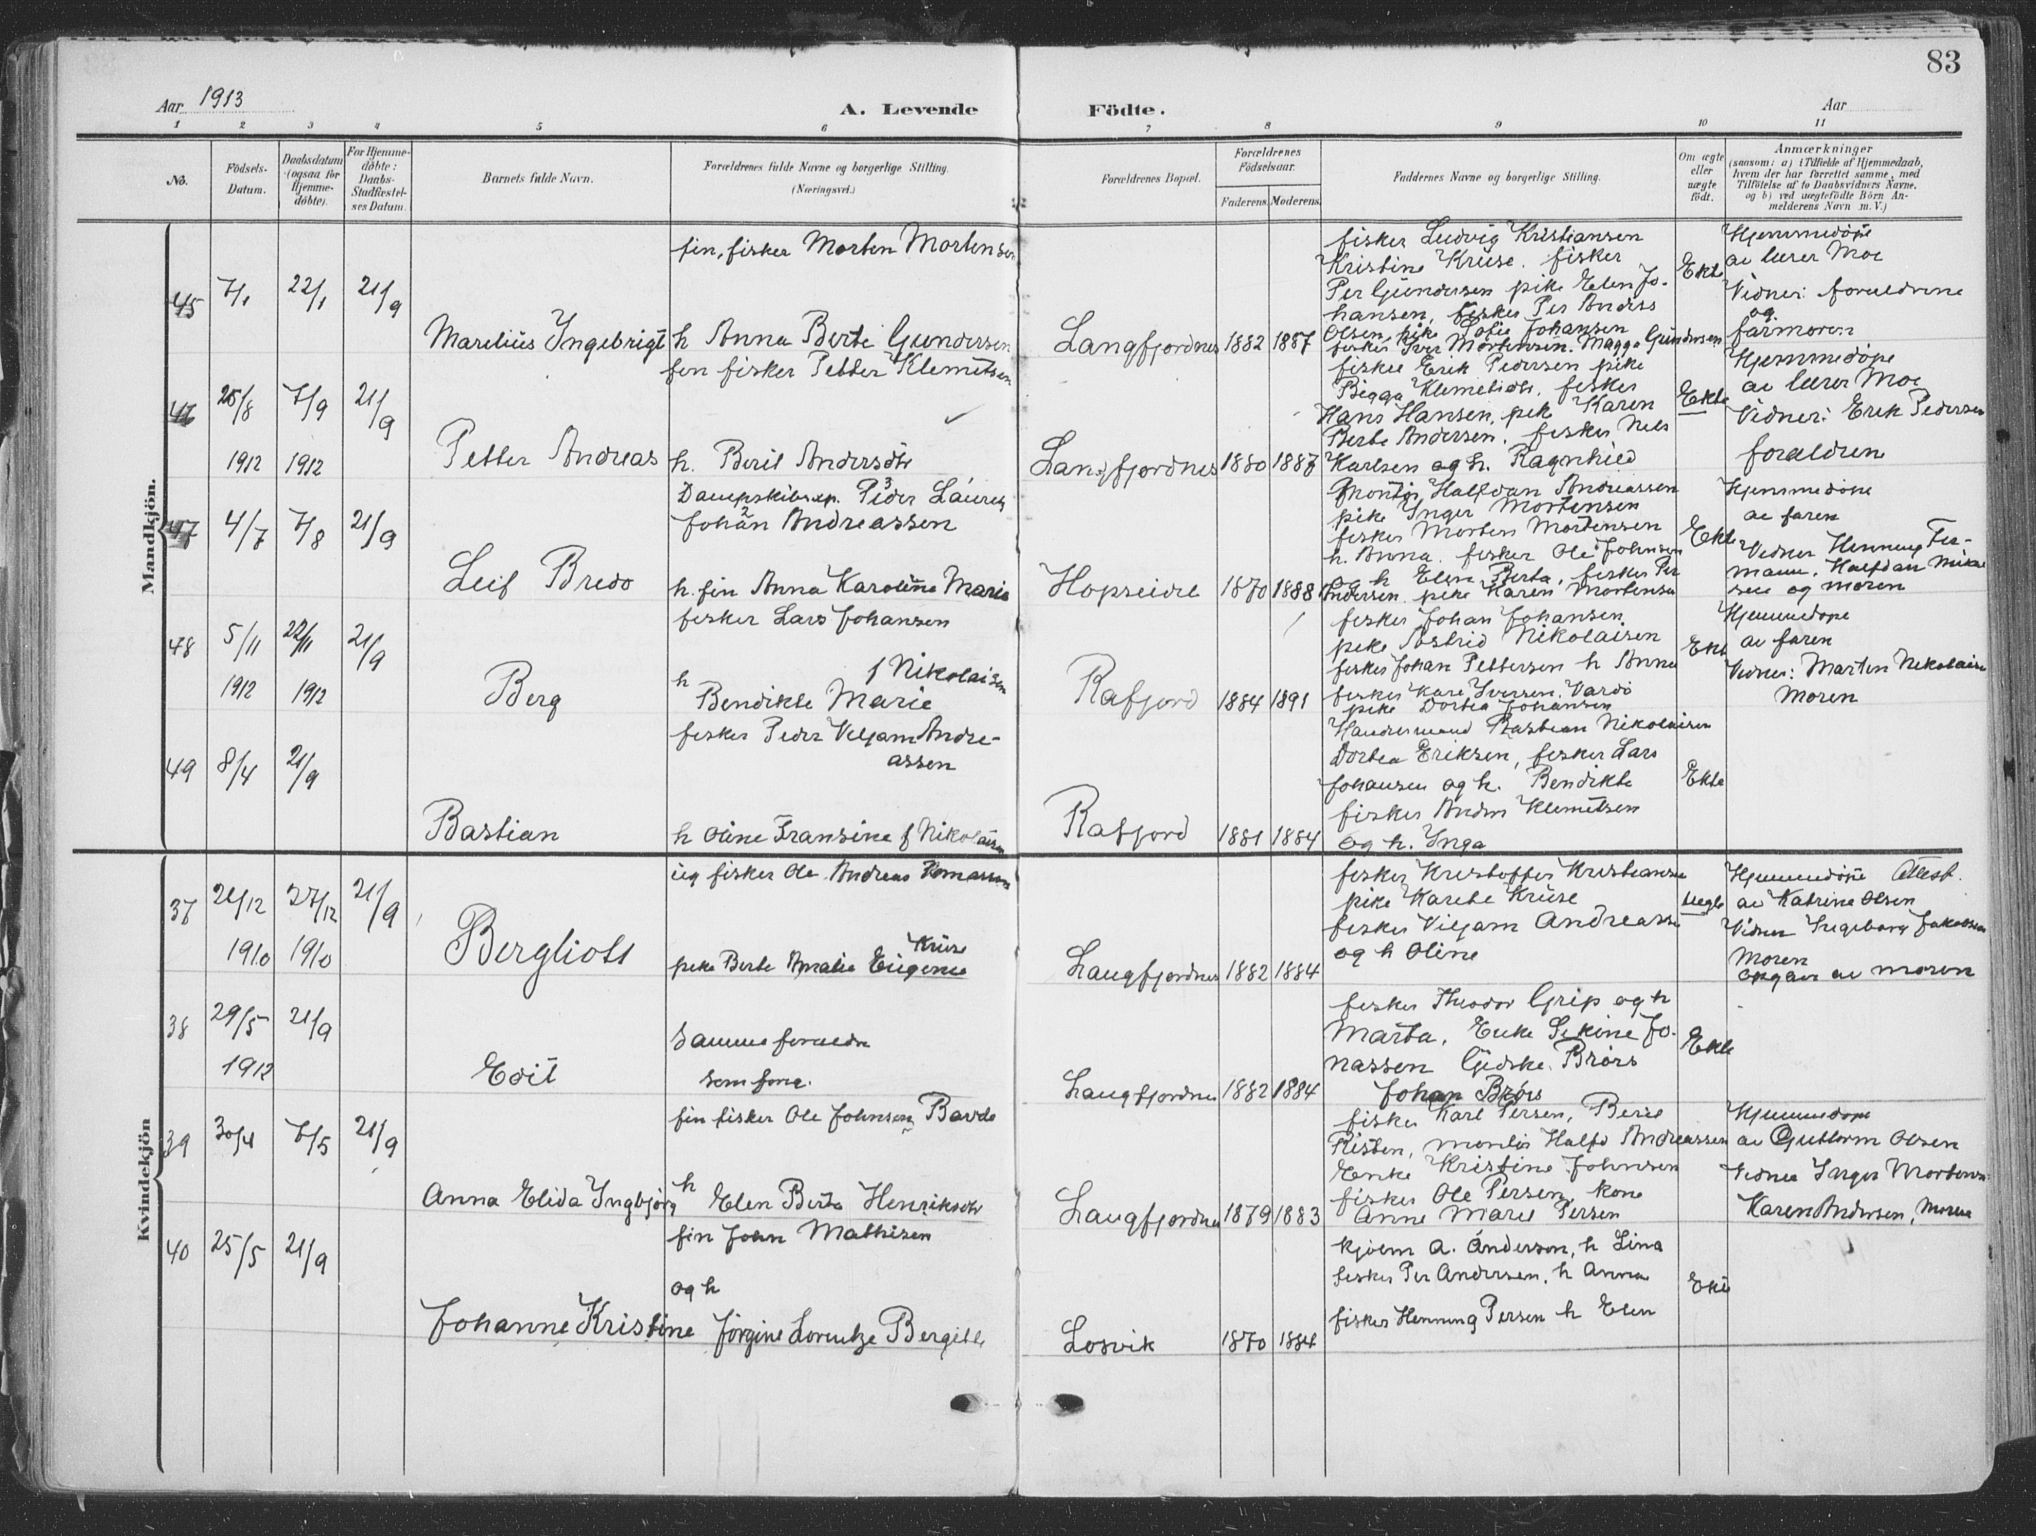 83
Aar 1913
A. Levende Födte.
Aar
1 2 3 4 5 6 7 8 9 10 11
No.
Födsels-Datum.
Daabsdatum (ogsaa for Hjemme-döbte).
For Hjemme-döbte: Daabs-Stadfæstel-ses Datum.
Barnets fulde Navn.
Forældrenes fulde Navne og borgerlige Stilling.
(Næringsvei.)
Forældrenes Bopæl.
Forældrenes Födselsaar.
Faderens. Moderens.
Faddernes Navne og borgerlige Stilling.
Om ægte eller uægte födt.
Anmærkninger
(saasom: a) i Tilfælde af Hjemmedaab, hvem der har forrettet samme, med Tilföielse af to Daabsvidners Navne, og b) ved uægtefödte Börn An-melderens Navn m. V.)
Mandkjön.
45 7/1 22/1 21/9
Marelius Ingebrigt
fin, fisker Morten Mortensen
h Anna Berte Gundersen
Langfjordnes 1882 1887
fisker Ludvig Kristiansen
Kristine Kruse. fisker
Per Gundersen pike Elen Jo-
hansen, fisker Per Anders
Olsen, pike Sofie Johansen
fisker Iver Mortensen. Magga Gundersen
Ekte
Hjemmedøpt
av lærer Moe
Vidner: forældrene
og
farmoren
46 25/8 7/9 21/9
1912 1912
Petter Andreas
fin fisker Petter Klemetsen
h. Beril Andersdtr
Langfjordnes 1880 1887
fisker Erik Pedersen pike
Bigga Klemetsdtr, fisker
Hans Hansen, pike Karen
Berte Andersen. fisker Nels
Karlsen og h. Ragnhild
Ekte
Hjemmedøpt
av lærer Moe
Vidner: Erik Pedersen
forældren
47 4/7 7/8 21/9
Leif Bredo
Dampskibsexp. Peder Laurits
Johan Andreassen
h. fin Anna Karoline Marie
Hopseidet 1870 1888
Montør Halfdan Andreassen
pike Inger Mortensen
fisker Morten Mortensen
h. Anna. fisker Ole Johnsen
og h Elen Berta, fisker Per
Andersen. pike Karen Mortensen
Ekte
Hjemmedøpt
av faren
Vidner Henning
Halfdan
og moren
48 5/11 22/11 21/9
1912 1912
Berg
fisker Lars Johansen
h f Nikolaisen
Bendikte Marie
Rafjord 1884 1891
fisker Johan Johansen
pike Astrid Nikolaisen
fisker Johan Pettersen h Anna
fisker Kare Iversen, Vardö
pike Dortea Johansen
Ekt
Hjemmedøpt
av faren
Vidner: Marten Nikolaisen
Moren
49 8/4 21/9
Bastian
fisker Peder Veljam Andre-
assen
h Oline Fransine f Nikolaisen
Rafjord 1881 1884
Handelsmand Bastian Nikolaisen
Dortea Eriksen, fisker Lars
Johansen og h. Bendikte
fisker Anders Klemetsen
og h. Inga
Ekte
Kvindekjön
37 21/12 27/12 21/9
1910 1910
Bergliott
ug fisker Ole Andreas Tomassen
Kruse
pike Berte Amalie Eugenie
Langfjordnes 1882 1884
fisker Kristoffer Kristiansen
pike Karete Kruse
fisker Viljam Andreassen
og h Oline
Uegte
Hjemmedøpt Attest.
av Katrine Olsen
Vidner Ingeborg Jakobsen
Moren
opgav av moren
38 29/5 21/9
1912
Edit
Samme foreldre
som forr.
Langfjordnes 1882 1884
fisker Theodor Grip og h
Marta, Enke Sekine Jo-
nassen Gjedske. Brörs
Johan Brörs
Ekte
39 30/4 7/5 21/9
Anna Elida Ingbjørg
fin fisker Ole Johnsen Bavdo
h Elen Berta Henriksdtr
Langfjordnes 1879 1883
fisker Karl Persen, Beret
Risten, montør Halfd Andreassen
Enke Kristine Johnsen
fisker Ole Persen, kone
Anne Maret Persen
Hjemmedøpt
av Guttorm Olsen
Vidner Inger Mortensen
Karen Andersen, Moren
40 25/5 21/9
Johanne Kristine
fin John Mathisen
og h
Jørgine Lorentze Bergitte
Losvik 1870 1884
kjøbm A. Anderson, h Lina
fisker Per Andersen, h Anna
fisker Henning Persen h Elen
Ekte